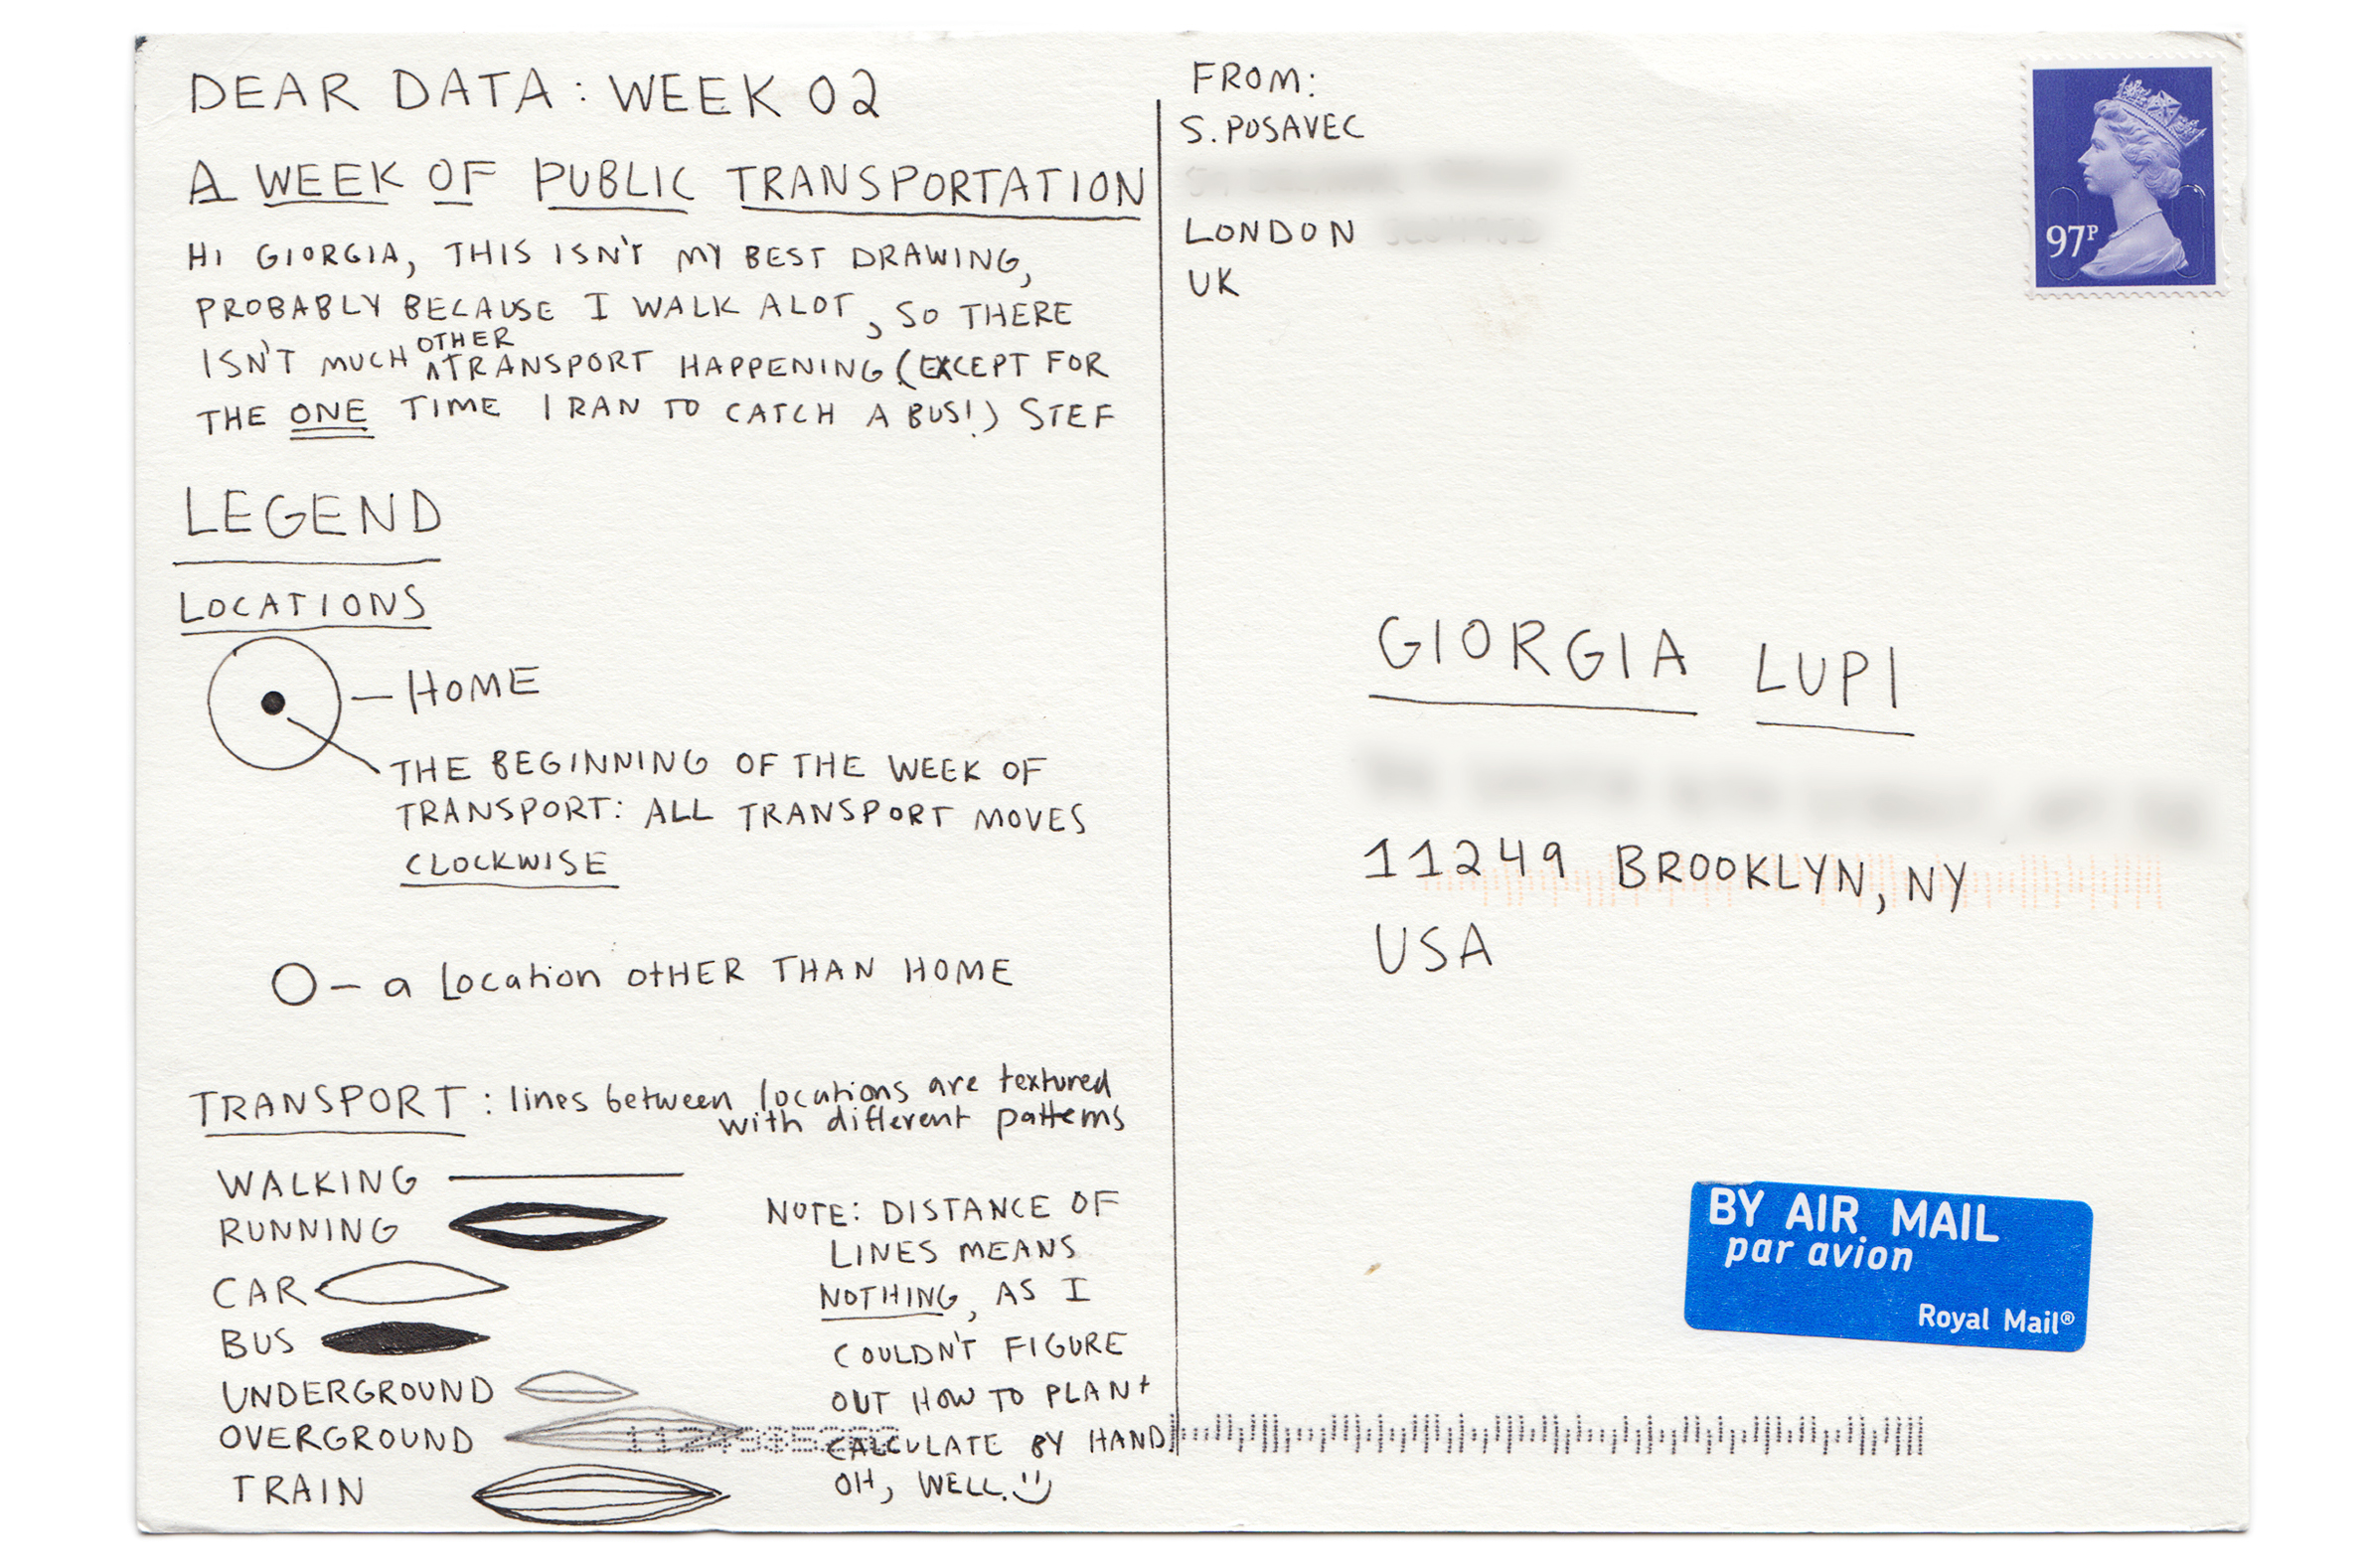 DEAR DATA: WEEK 02
A WEEK OF PUBLIC TRANSPORTATION
HI GIORGIA, THIS ISN'T MY BEST DRAWING,
PROBABLY BECAUSE I WALK ALOT, SO THERE
ISN'T MUCH OTHER TRANSPORT HAPPENING (EXCEPT FOR
THE ONE TIME I RAN TO CATCH A BUS!) STEF
LEGEND
LOCATIONS
— HOME
THE BEGINNING OF THE WEEK OF
TRANSPORT: ALL TRANSPORT MOVES
CLOCKWISE
— a Location otHER THAN HOME
TRANSPORT: lines between locations are textured
with different patterns
WALKING
RUNNING
CAR
BUS
UNDERGROUND
OVERGROUND
TRAIN
NOTE: DISTANCE OF
LINES MEANS
NOTHING, AS I
COULDN'T FIGURE
OUT HOW TO PLAN +
CALCULATE BY HAND.
OH, WELL.
FROM:
S. POSAVEC
LONDON
UK
97P
GIORGIA LUPI
11249 BROOKLYN, NY
USA
BY AIR MAIL
par avion
Royal Mail®